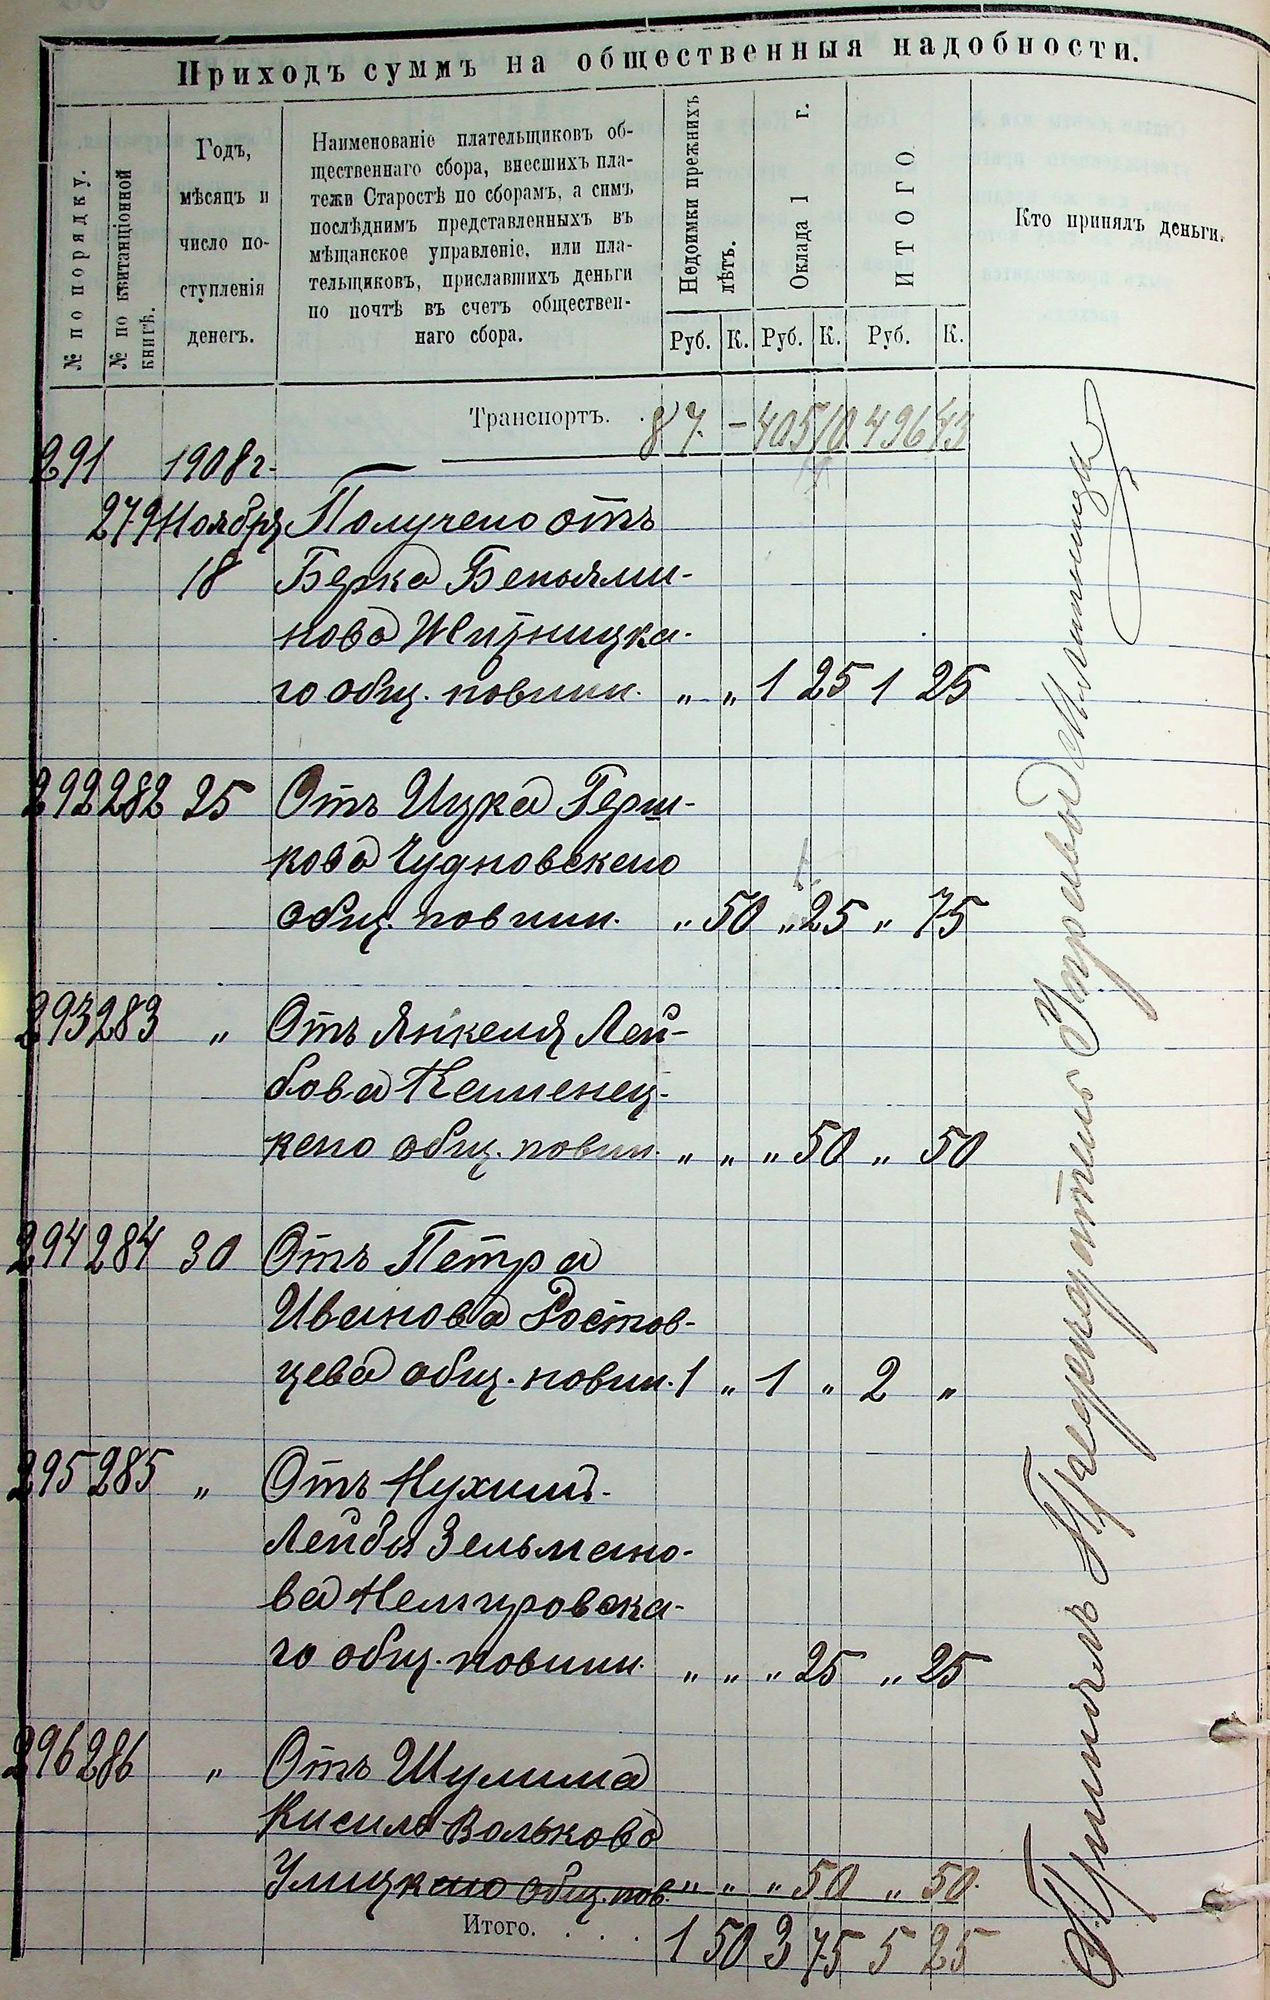 Приходъ суммъ на общественныя надобности.
№ по порядку.
№ по квитанціонной
книгѣ.
Годъ,
мѣсяцъ и
число по-
ступленія
денегъ.
Наименованіе плательщиковъ об-
щественнаго сбора, внесшихъ пла-
тежи Старостѣ по сборамъ, а симъ
послѣднимъ представленныхъ въ
мѣщанское управленіе, или пла-
тельщиковъ, приславшихъ деньги
по почтѣ въ счетъ обществен-
наго сбора.
Недоимки прежнихъ
лѣтъ.
Оклада 1 г.
ИТОГО
Кто принялъ деньги.
Руб. К. Руб. К. Руб. К.
Транспортъ. 87 - 405 496 43
291 1908 г.
279 Ноября Получено отъ
18 Берка Беньями-
нова Житницка-
го общ. повин. „ „ 1 25 1 25
292 282 25 Отъ Ицка Герш-
кова Чудновскаго
общ. повин. „ 50 „ 25 „ 75
293 283 „ Отъ Янкеля Лей-
бова Каменец-
каго общ. повин. „ „ „ 50 „ 50
294 284 30 Отъ Петра
Иванова Ростов-
цева общ. повин. 1 „ 1 „ 2 „
295 285 „ Отъ Нухима
Лейбы Зельмано-
ва Немировска-
го общ. повин. „ „ „ 25 „ 25
296 286 „ Отъ Шулима
Кисиля Волькова
Улицкаго общ. пов. „ „ „ 50 „ 50
Итого. . . . 1 50 3 75 5 25
Принялъ Предсѣдатель Управы